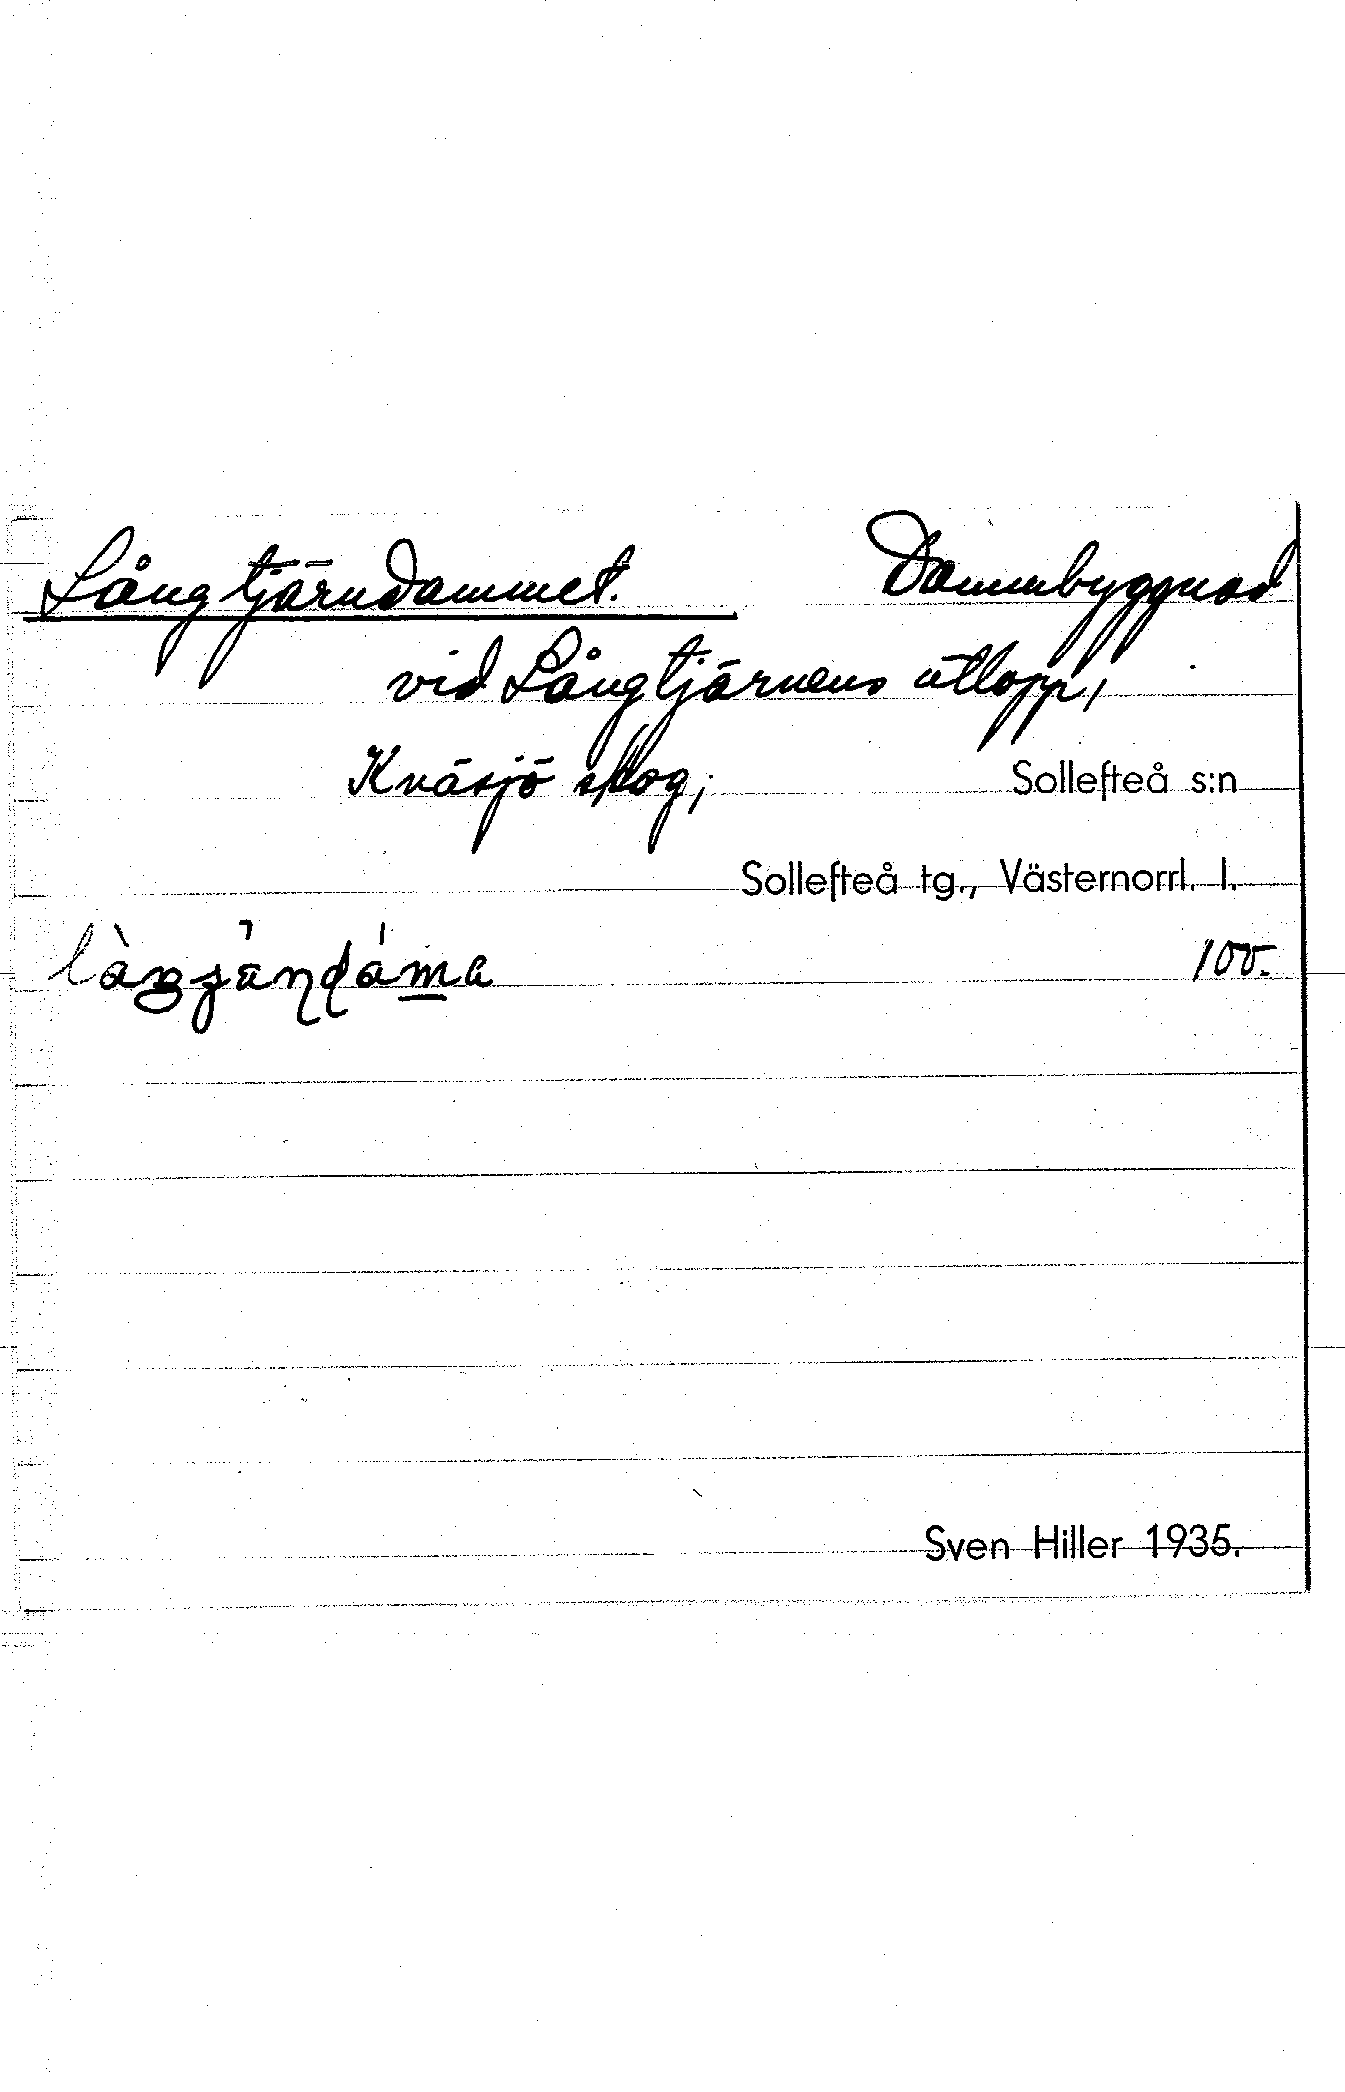 Långtjärndammet. Dammbyggnad
vid Långtjärnens utlopp,
Kväsjö skog; Sollefteå s:n
Sollefteå tg., Västernorrl. l.
100.
Sven Hiller 1935.